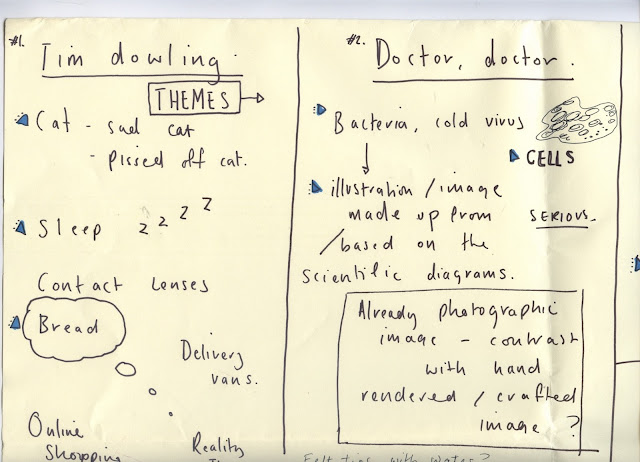 #1.
Tim dowling.
THEMES
Cat - sad cat
- pissed off cat.
Sleep z z z z
Contact lenses
Bread
Delivery
vans.
Online
Shopping
Reality
#2.
Doctor, doctor.
Bacteria, cold virus
CELLS
illustration / image
made up from
SERIOUS.
/ based on the
scientific diagrams.
Already photographic
image - contrast
with hand
rendered / crafted
image ?
Felt tips with water?